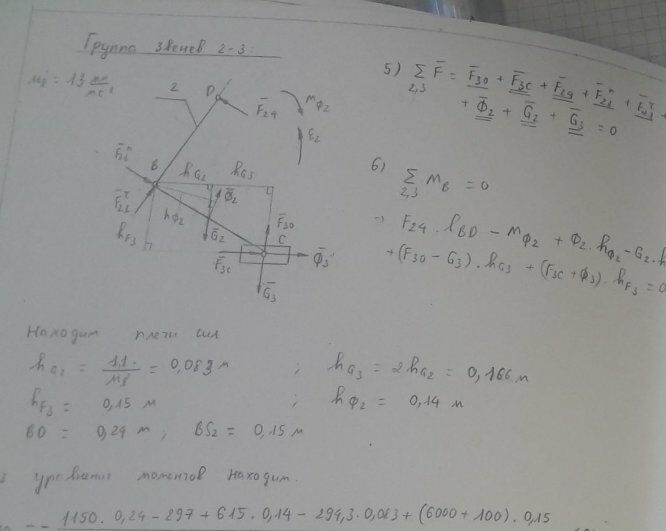 Группа звеньев 2-3:
μl = 13 мм/мс²
2
D
F̄24
MФ2
ε2
F̄21ⁿ
B
hG2 hG3
F̄21^τ
Φ̄2
hФ2
hF3
Ḡ2
F̄30
C
F̄3C
Φ̄3
Ḡ3
5) Σ2,3 F̄ = F̄30 + F̄3C + F̄24 + F̄21ⁿ + F̄21^τ +
+ Φ̄2 + Ḡ2 + Ḡ3 = 0
6) Σ2,3 MB = 0
F24 · lBD − MФ2 + Φ2 · hФ2 − G2 · h
+ (F30 − G3) · hG3 + (F3C + Φ3) · hF3 = 0
Находим плечи сил
hG2 = 11/μl = 0,083 м ; hG3 = 2hG2 = 0,166 м
hF3 = 0,15 м ; hФ2 = 0,14 м
BD = 0,24 м ; BS2 = 0,15 м
уровнения моментов находим.
1150 · 0,24 − 297 + 615 · 0,14 − 294,3 · 0,083 + (6000 + 100) · 0,15